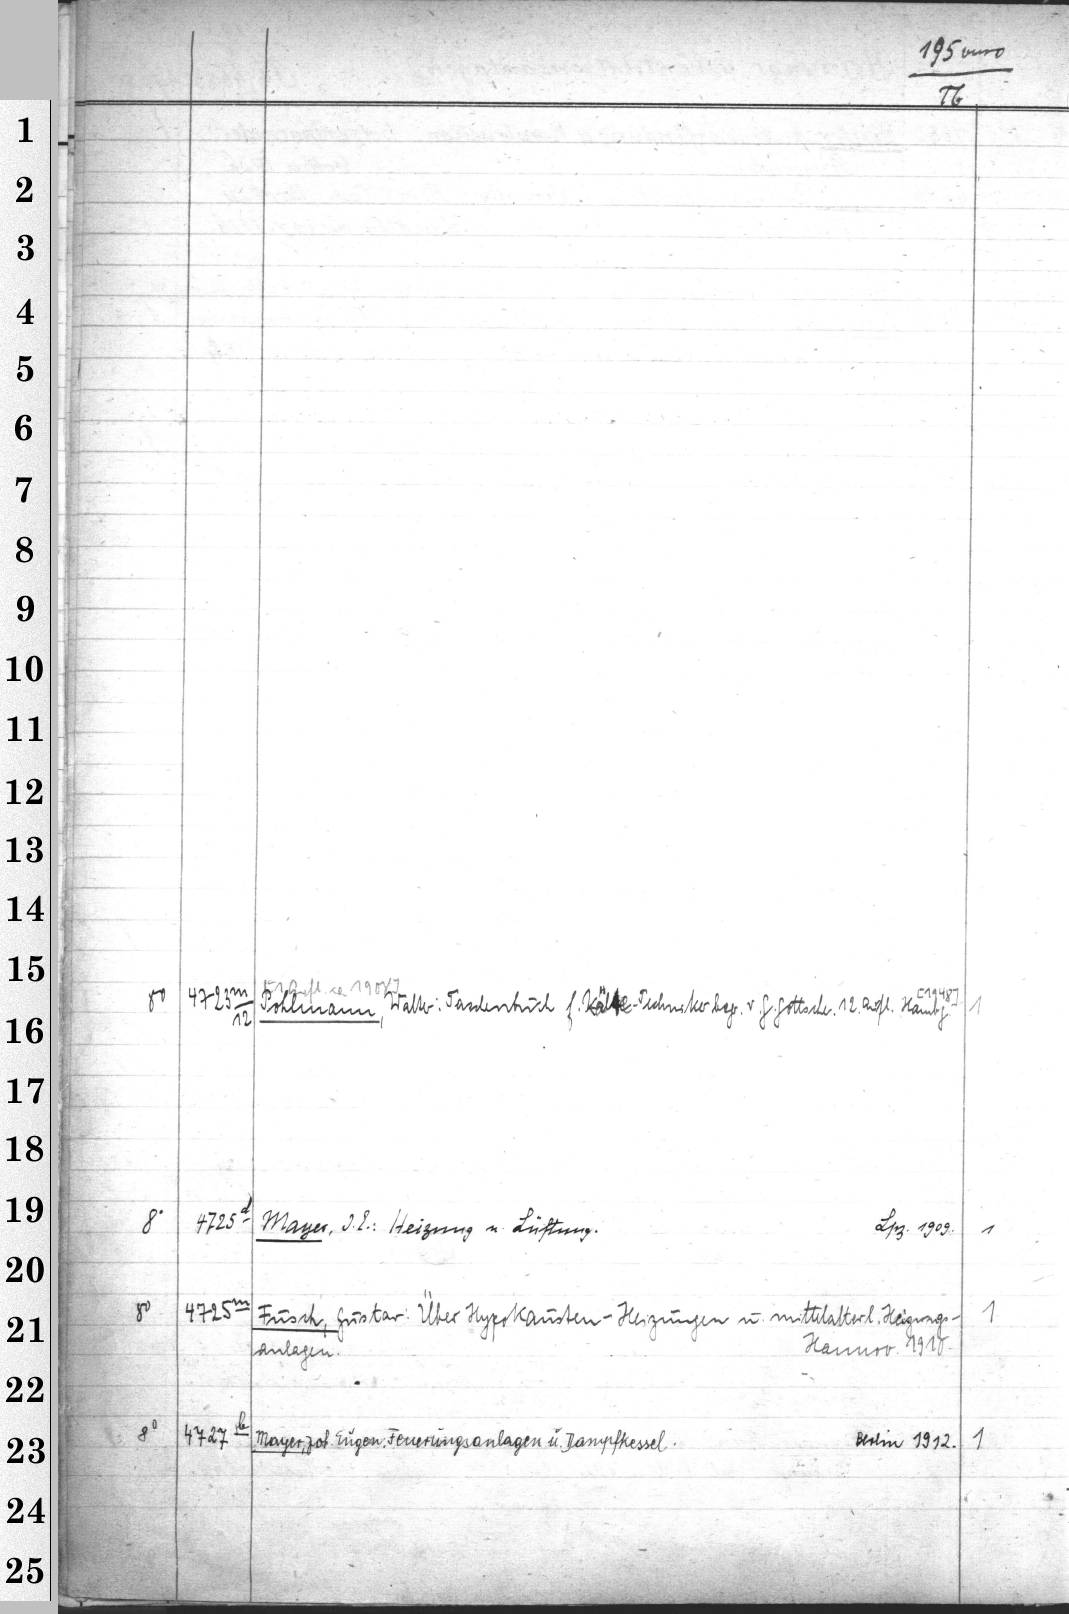 195
Tb
1
2
3
4
5
6
7
8
9
10
11
12
13
14
15
[1. Aufl. ca 190
8° 4723 m/12 Pohlmann, Walter: Taschenbuch f. Kälte-Techniker begr. v G. Göttsche. 12. Aufl. Hambg [1948] 1
16
17
18
19
8° 4725 d Mayer, J. E.: Heizung u. Lüftung. Lpz. 1909. 1
20
8° 4725 m Fusch, Gustav: Über Hypokausten-Heizungen u. mittelalterl. Heizungs- 1
21
anlagen. Hannov. 1910.
22
8° 4727 b Mayer, Joh. Eugen: Feuerungsanlagen u. Dampfkessel. Berlin 1912. 1
23
24
25